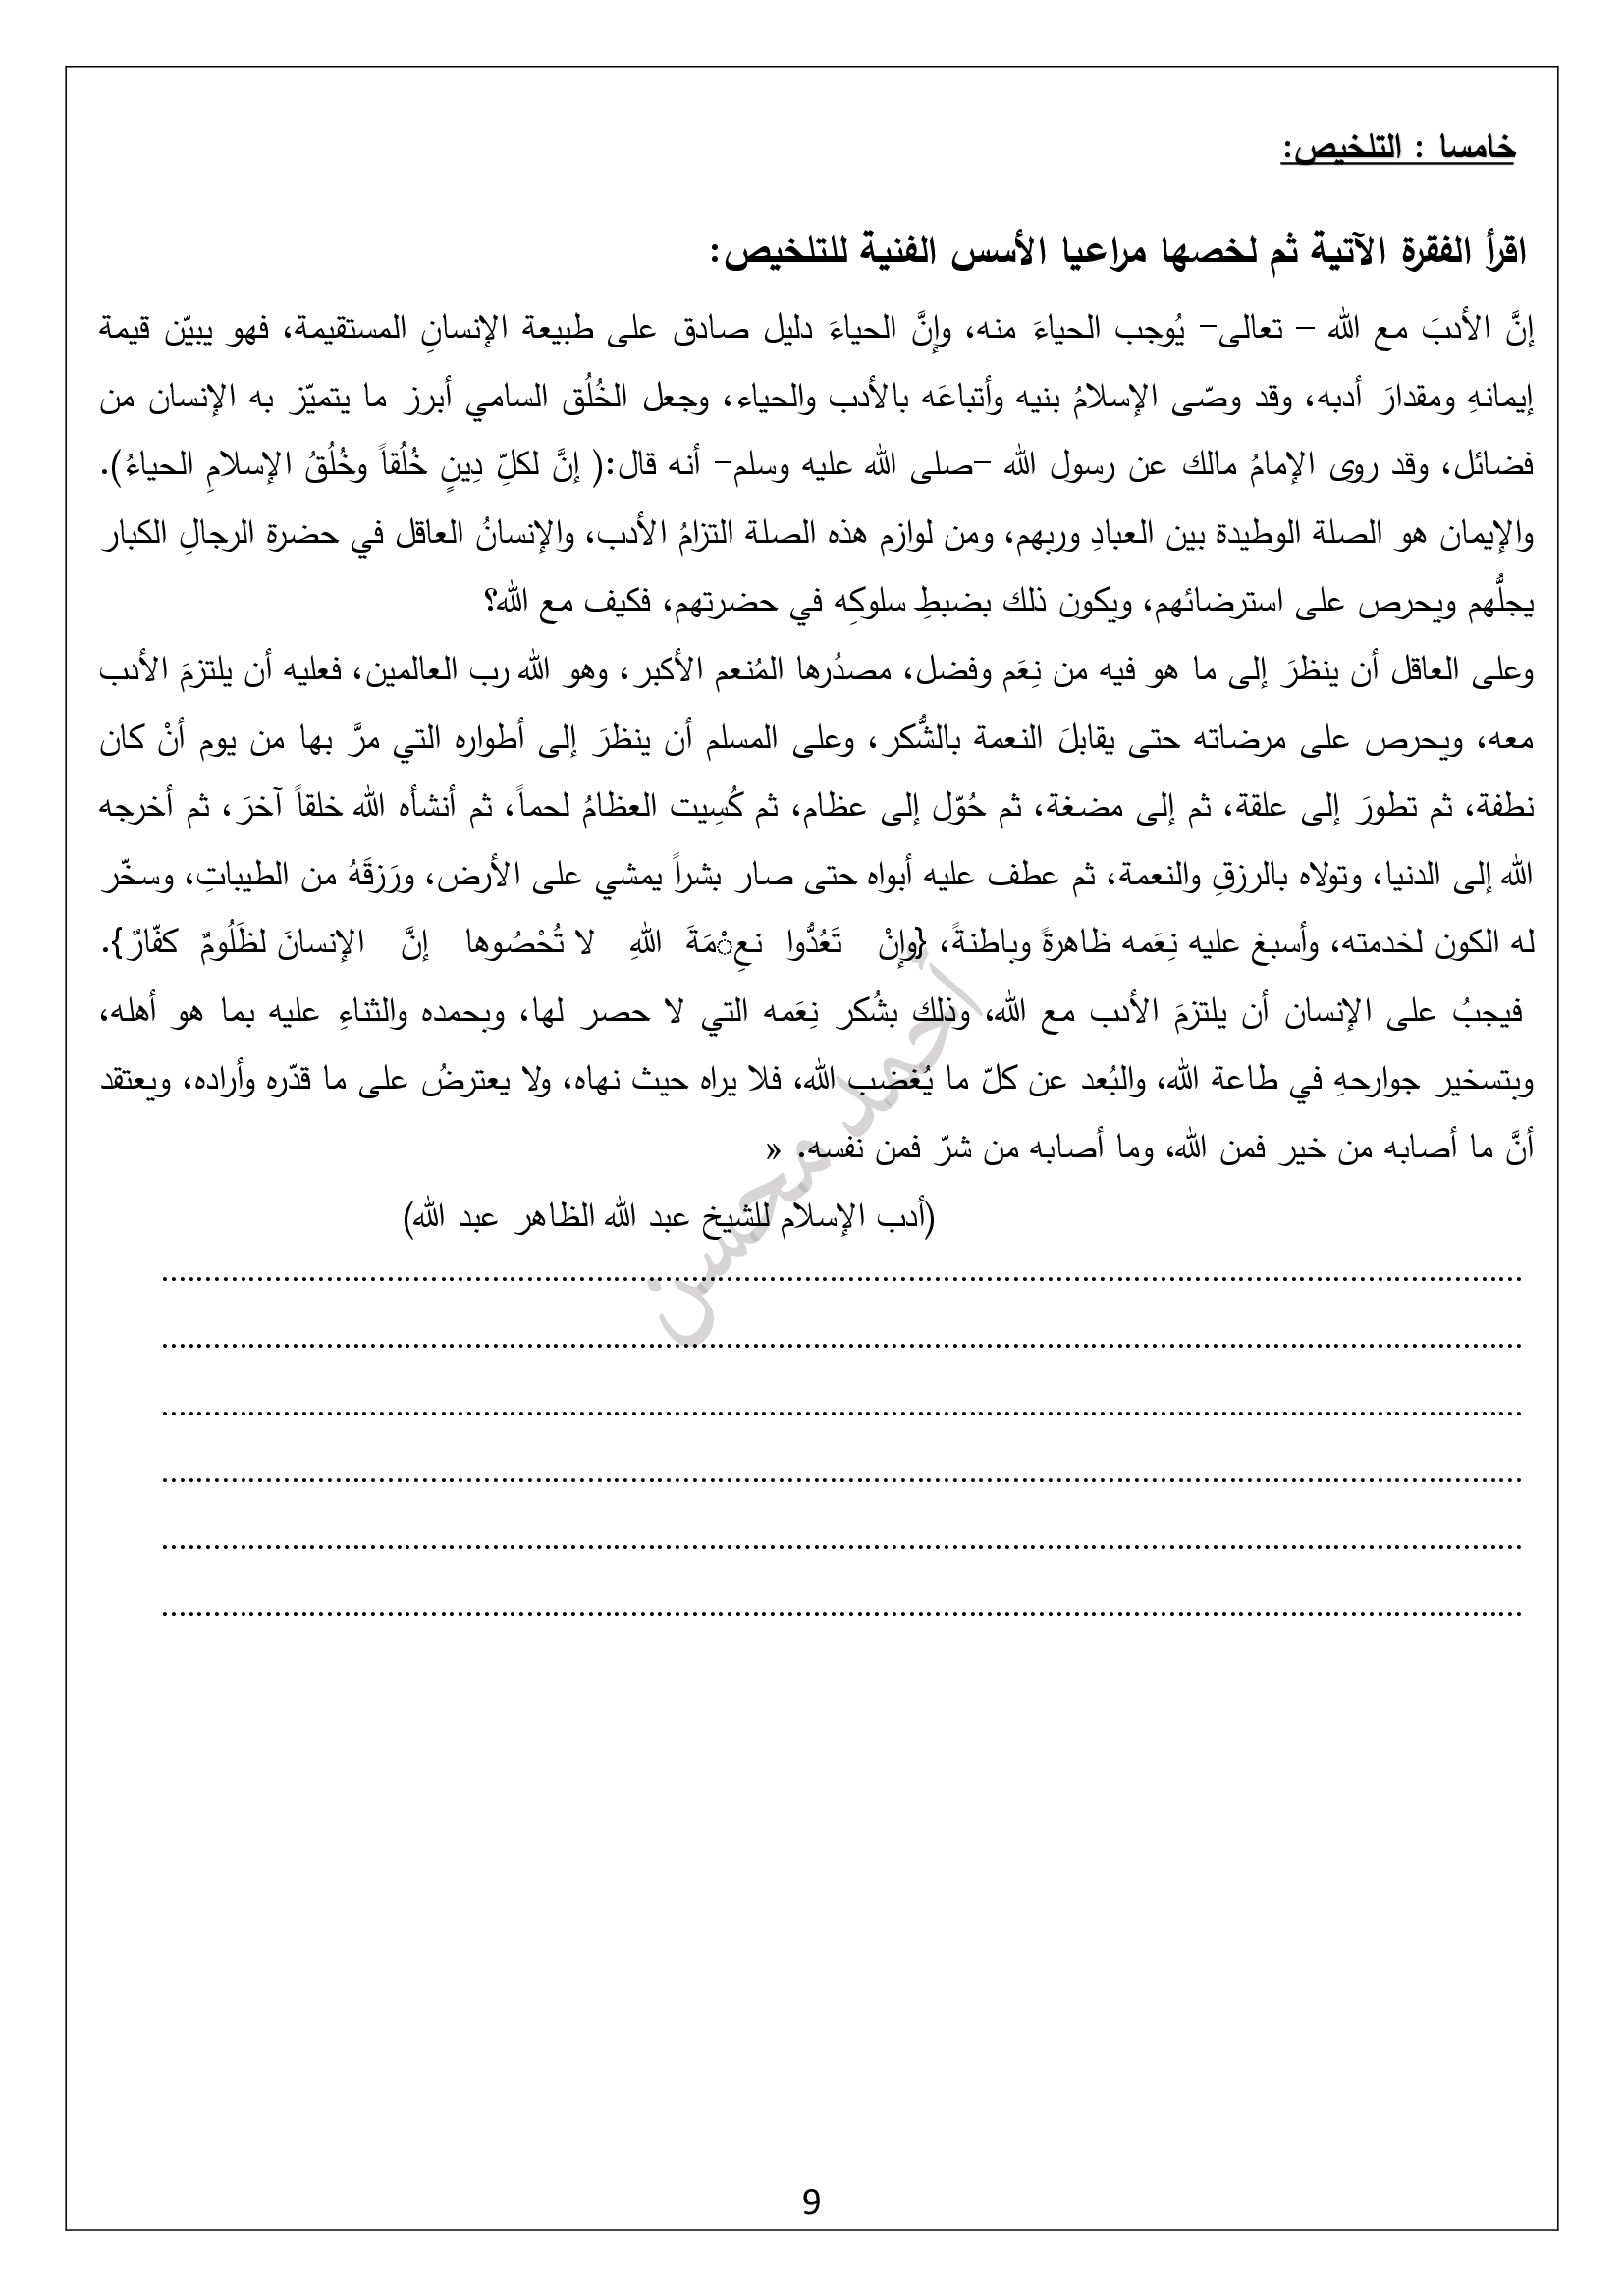 خامسا : التلخيص:
اقرأ الفقرة الآتية ثم لخصها مراعيا الأسس الفنية للتلخيص:
إنَّ الأدبَ مع الله – تعالى– يُوجب الحياءَ منه، وإنَّ الحياءَ دليل صادق على طبيعة الإنسانِ المستقيمة، فهو يبيّن قيمة
إيمانهِ ومقدارَ أدبه، وقد وصّى الإسلامُ بنيه وأتباعَه بالأدب والحياء، وجعل الخُلُق السامي أبرز ما يتميّز به الإنسان من
فضائل، وقد روى الإمامُ مالك عن رسول الله –صلى الله عليه وسلم– أنه قال:( إنَّ لكلِّ دِينٍ خُلُقاً وخُلُقُ الإسلامِ الحياءُ).
والإيمان هو الصلة الوطيدة بين العبادِ وربهم، ومن لوازم هذه الصلة التزامُ الأدب، والإنسانُ العاقل في حضرة الرجالِ الكبار
يجلُّهم ويحرص على استرضائهم، ويكون ذلك بضبطِ سلوكِه في حضرتهم، فكيف مع الله؟
وعلى العاقل أن ينظرَ إلى ما هو فيه من نِعَم وفضل، مصدُرها المُنعم الأكبر، وهو الله رب العالمين، فعليه أن يلتزمَ الأدب
معه، ويحرص على مرضاته حتى يقابلَ النعمة بالشُّكر، وعلى المسلم أن ينظرَ إلى أطواره التي مرَّ بها من يوم أنْ كان
نطفة، ثم تطورَ إلى علقة، ثم إلى مضغة، ثم حُوّل إلى عظام، ثم كُسِيت العظامُ لحماً، ثم أنشأه الله خلقاً آخرَ، ثم أخرجه
الله إلى الدنيا، وتولاه بالرزقِ والنعمة، ثم عطف عليه أبواه حتى صار بشراً يمشي على الأرض، ورَزقَهُ من الطيباتِ، وسخّر
له الكون لخدمته، وأسبغ عليه نِعَمه ظاهرةً وباطنةً، {وإنْ تَعُدُّوا نعِْمَةَ اللهِ لا تُحْصُوها إنَّ الإنسانَ لظَلُومٌ كفّارٌ}.
فيجبُ على الإنسان أن يلتزمَ الأدب مع الله، وذلك بشُكر نِعَمه التي لا حصر لها، وبحمده والثناءِ عليه بما هو أهله،
وبتسخير جوارحهِ في طاعة الله، والبُعد عن كلّ ما يُغضب الله، فلا يراه حيث نهاه، ولا يعترضُ على ما قدّره وأراده، ويعتقد
أنَّ ما أصابه من خير فمن الله، وما أصابه من شرّ فمن نفسه. «
(أدب الإسلام للشيخ عبد الله الظاهر عبد الله)
أحمد محسن
9